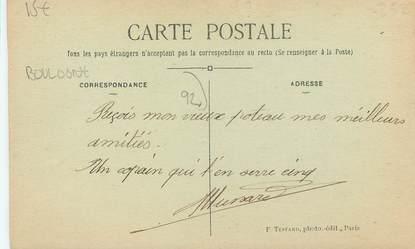 15€
CARTE POSTALE
Tous les pays étrangers n'acceptent pas la correspondance au recto (Se renseigner à la Poste)
CORRESPONDANCE
ADRESSE
92
Reçois mon vieux poteau mes meilleurs
amitiés.
Un copain qui t'en serre cinq
F. TESTARD, photo.-édit., Paris